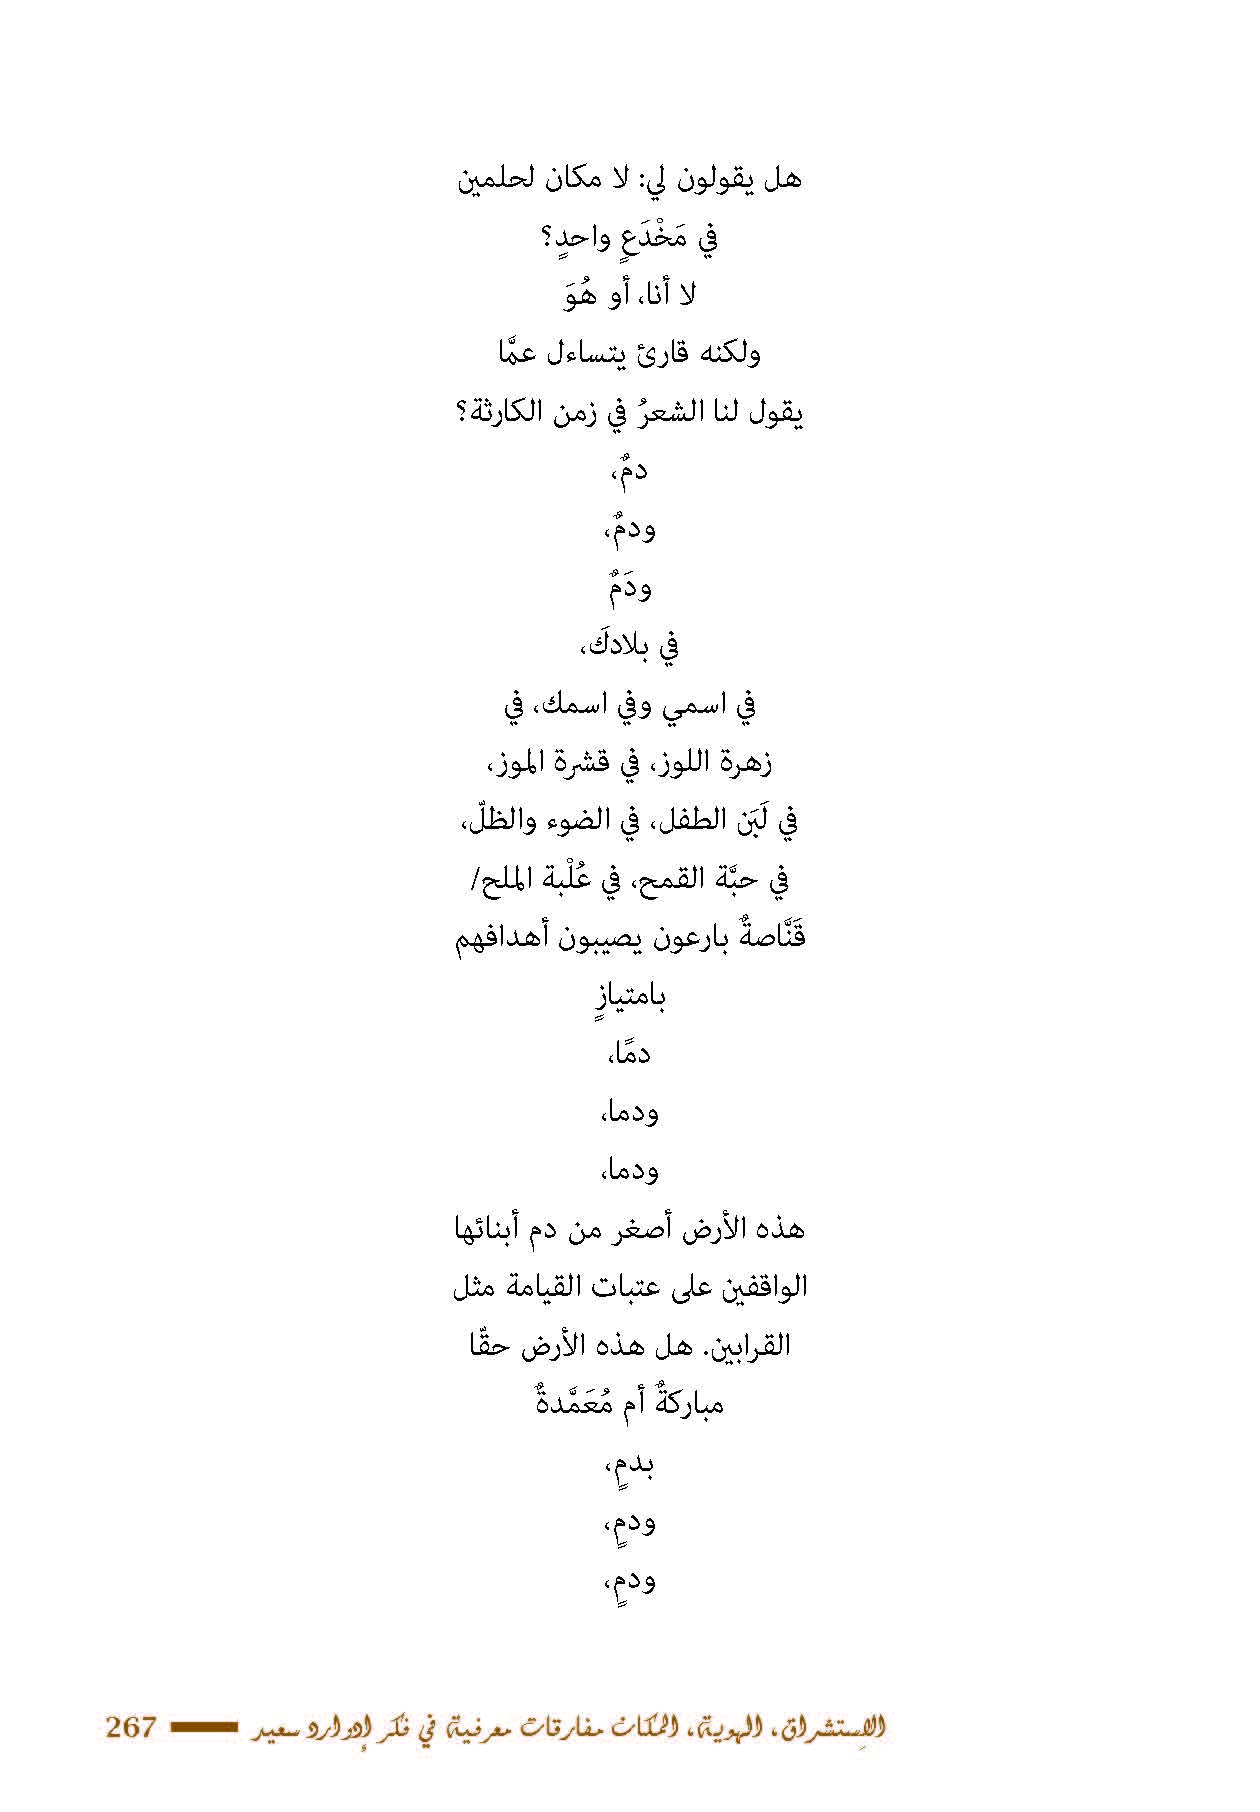 هل يقولون لي: لا مكان لحلمين
في مَخْدَعٍ واحدٍ؟
لا أنا، أو هُوَ
ولكنه قارئ يتساءل عمَّا
يقول لنا الشعرُ في زمن الكارثة؟
دمٌ،
ودمٌ،
ودَمٌ
في بلادكَ،
في اسمي وفي اسمك، في
زهرة اللوز، في قشرة الموز،
في لَبَن الطفل، في الضوء والظلّ،
في حبَّة القمح، في عُلْبة الملح/
قَنَّاصةٌ بارعون يصيبون أهدافهم
بامتيازٍ
دمًا،
ودما،
ودما،
هذه الأرض أصغر من دم أبنائها
الواقفين على عتبات القيامة مثل
القرابين. هل هذه الأرض حقّا
مباركةٌ أم مُعَمَّدةٌ
بدمٍ،
ودمٍ،
ودمٍ،
الاِستشراق، الهوية، المكان مفارقات معرفية في فكر إدوارد سعيد 267